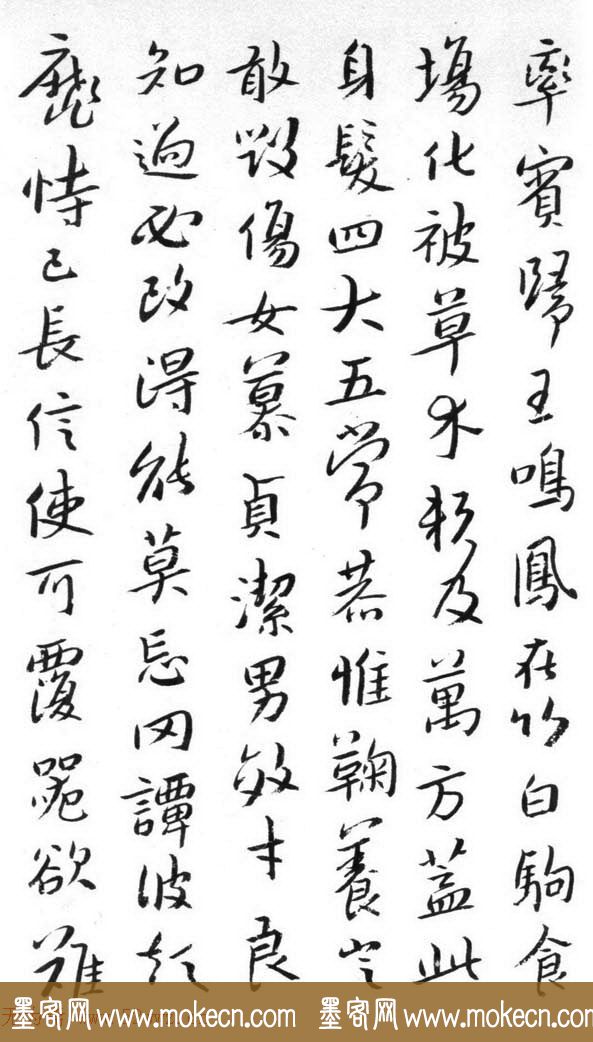 率賓歸王鳴鳳在竹白駒食
場化被草木賴及萬方蓋此
身髮四大五常恭惟鞠養豈
敢毀傷女慕貞潔男效才良
知過必改得能莫忘罔譚彼短
靡恃己長信使可覆器欲難
墨客网 www.mokecn.com 墨客网 www.mokecn.com